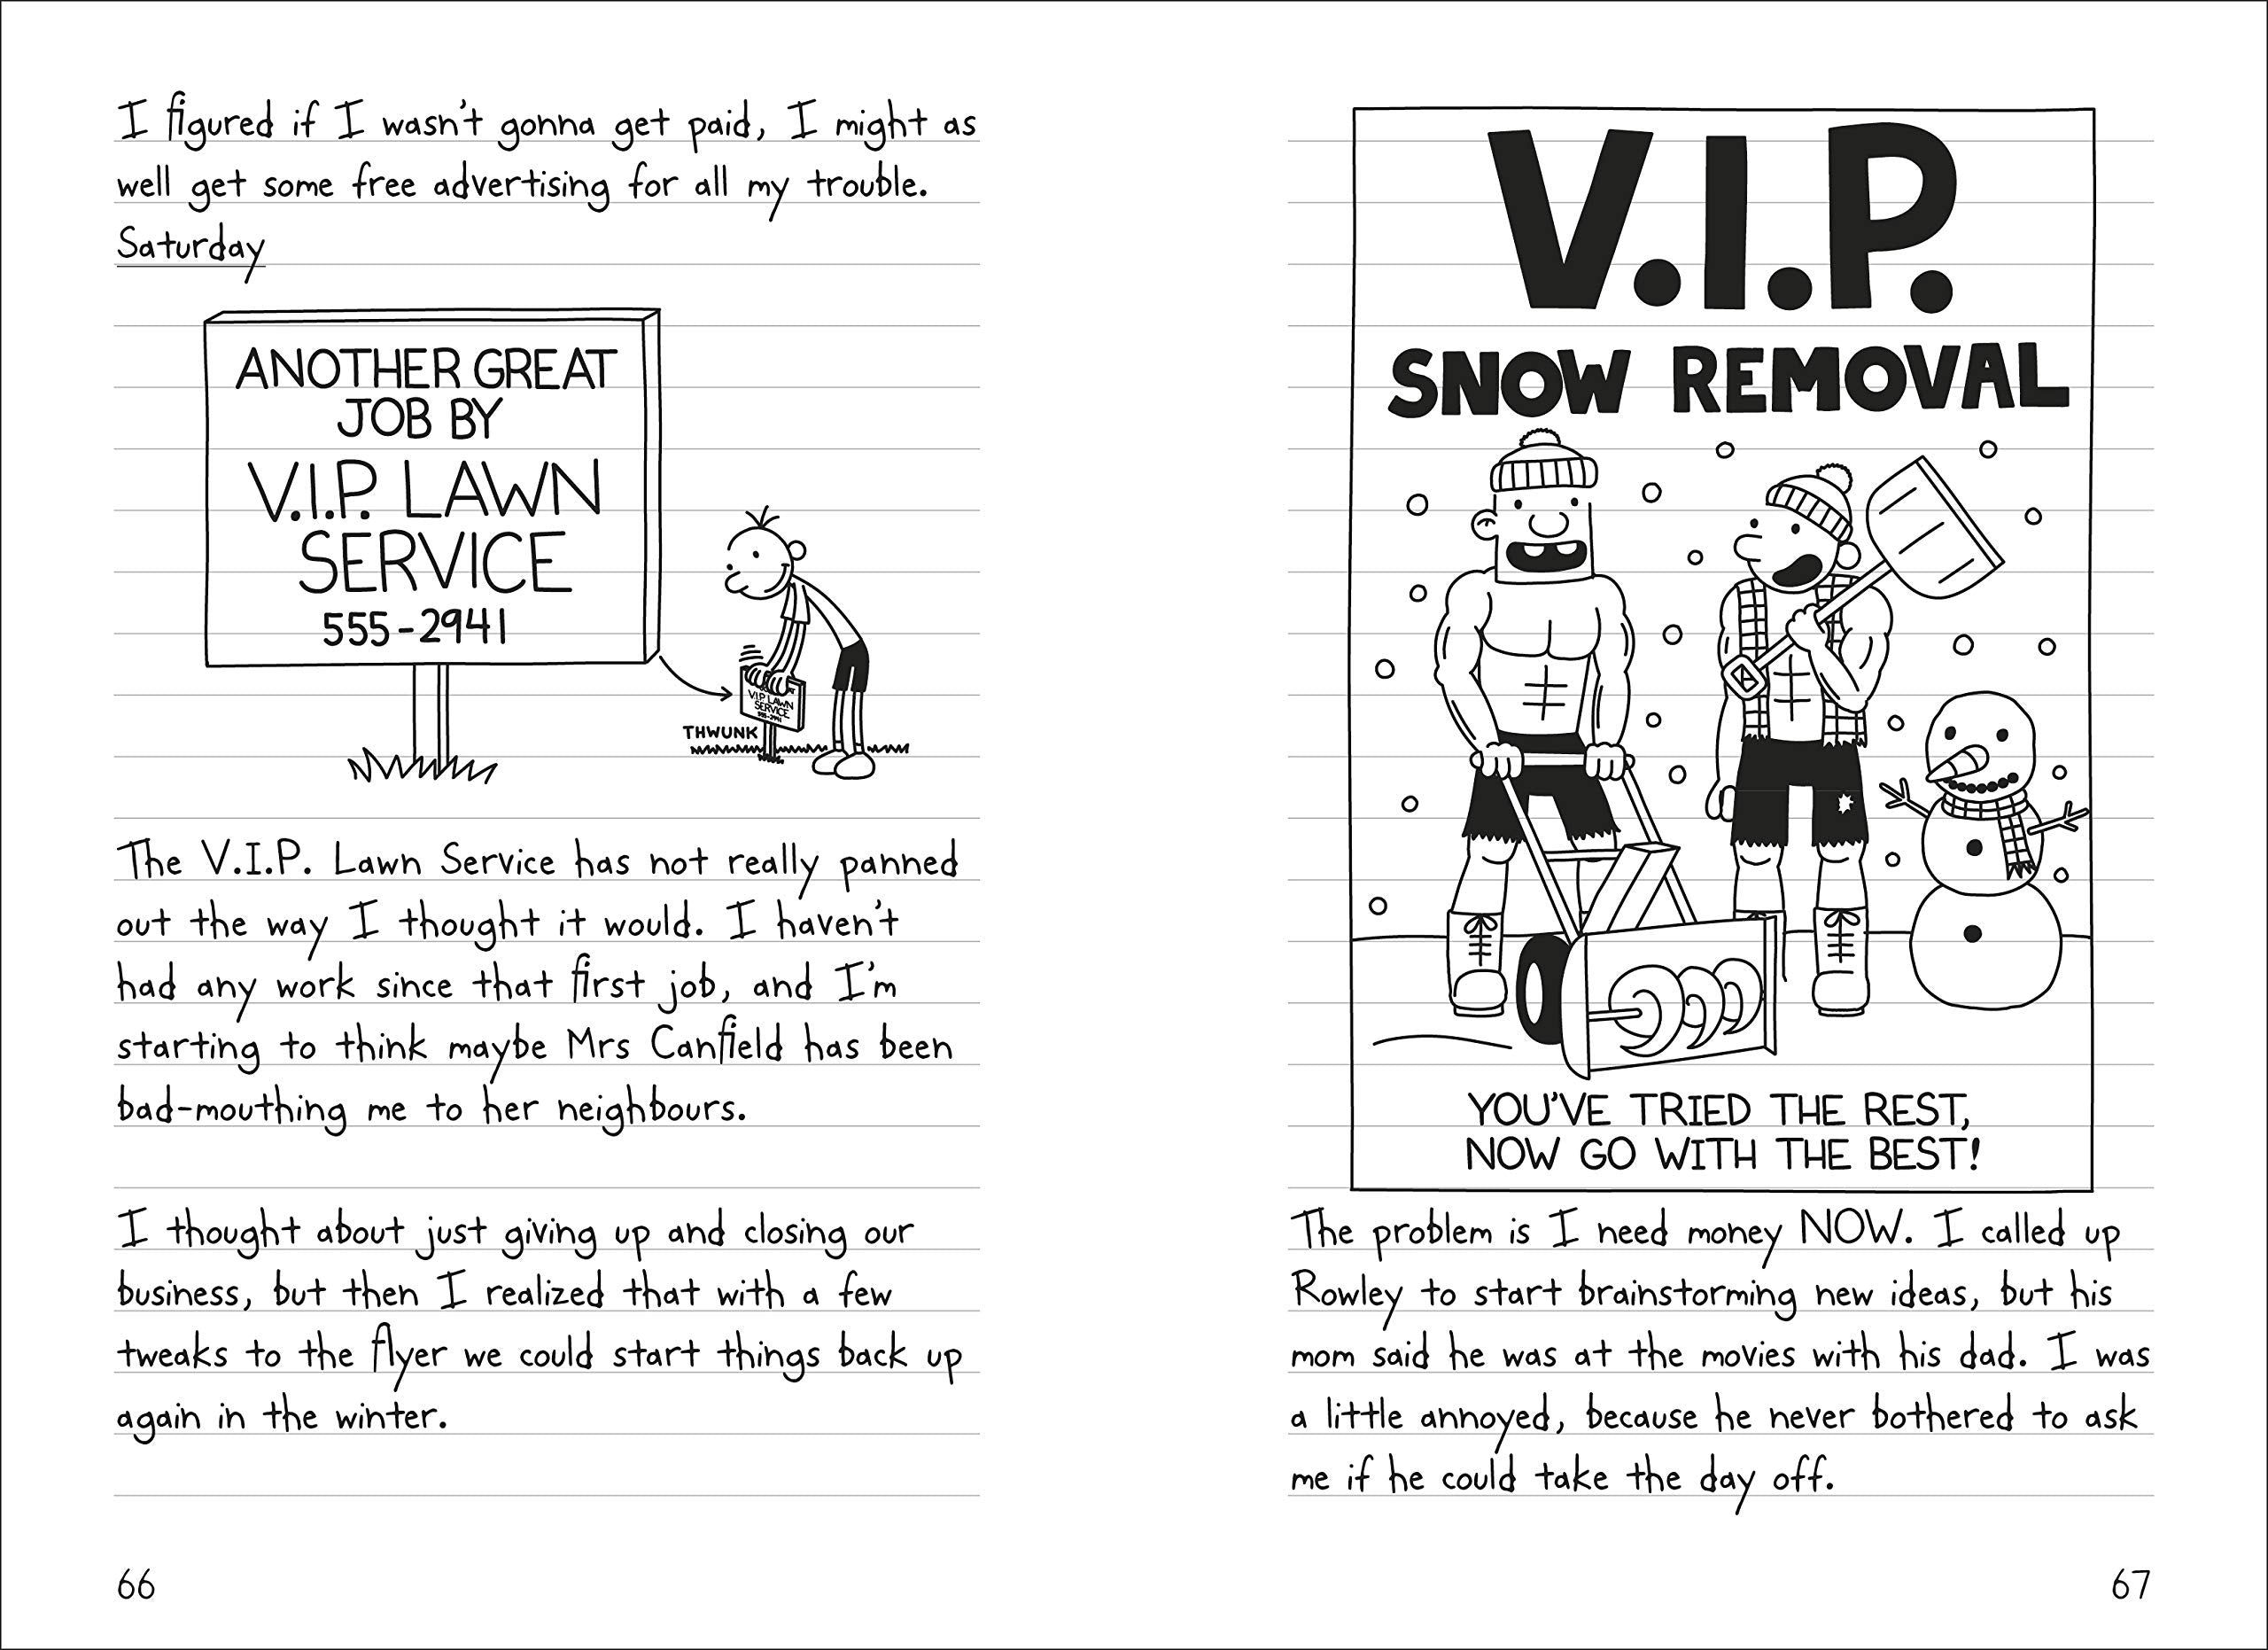 I figured if I wasn't gonna get paid, I might as
well get some free advertising for all my trouble.
Saturday
ANOTHER GREAT
JOB BY
V.I.P. LAWN
SERVICE
555-2941
V.I.P. LAWN
SERVICE
555-2941
THWUNK
The V.I.P. Lawn Service has not really panned
out the way I thought it would. I haven't
had any work since that first job, and I'm
starting to think maybe Mrs Canfield has been
bad-mouthing me to her neighbours.
I thought about just giving up and closing our
business, but then I realized that with a few
tweaks to the flyer we could start things back up
again in the winter.
66
V.I.P.
SNOW REMOVAL
YOU'VE TRIED THE REST,
NOW GO WITH THE BEST!
The problem is I need money NOW. I called up
Rowley to start brainstorming new ideas, but his
mom said he was at the movies with his dad. I was
a little annoyed, because he never bothered to ask
me if he could take the day off.
67